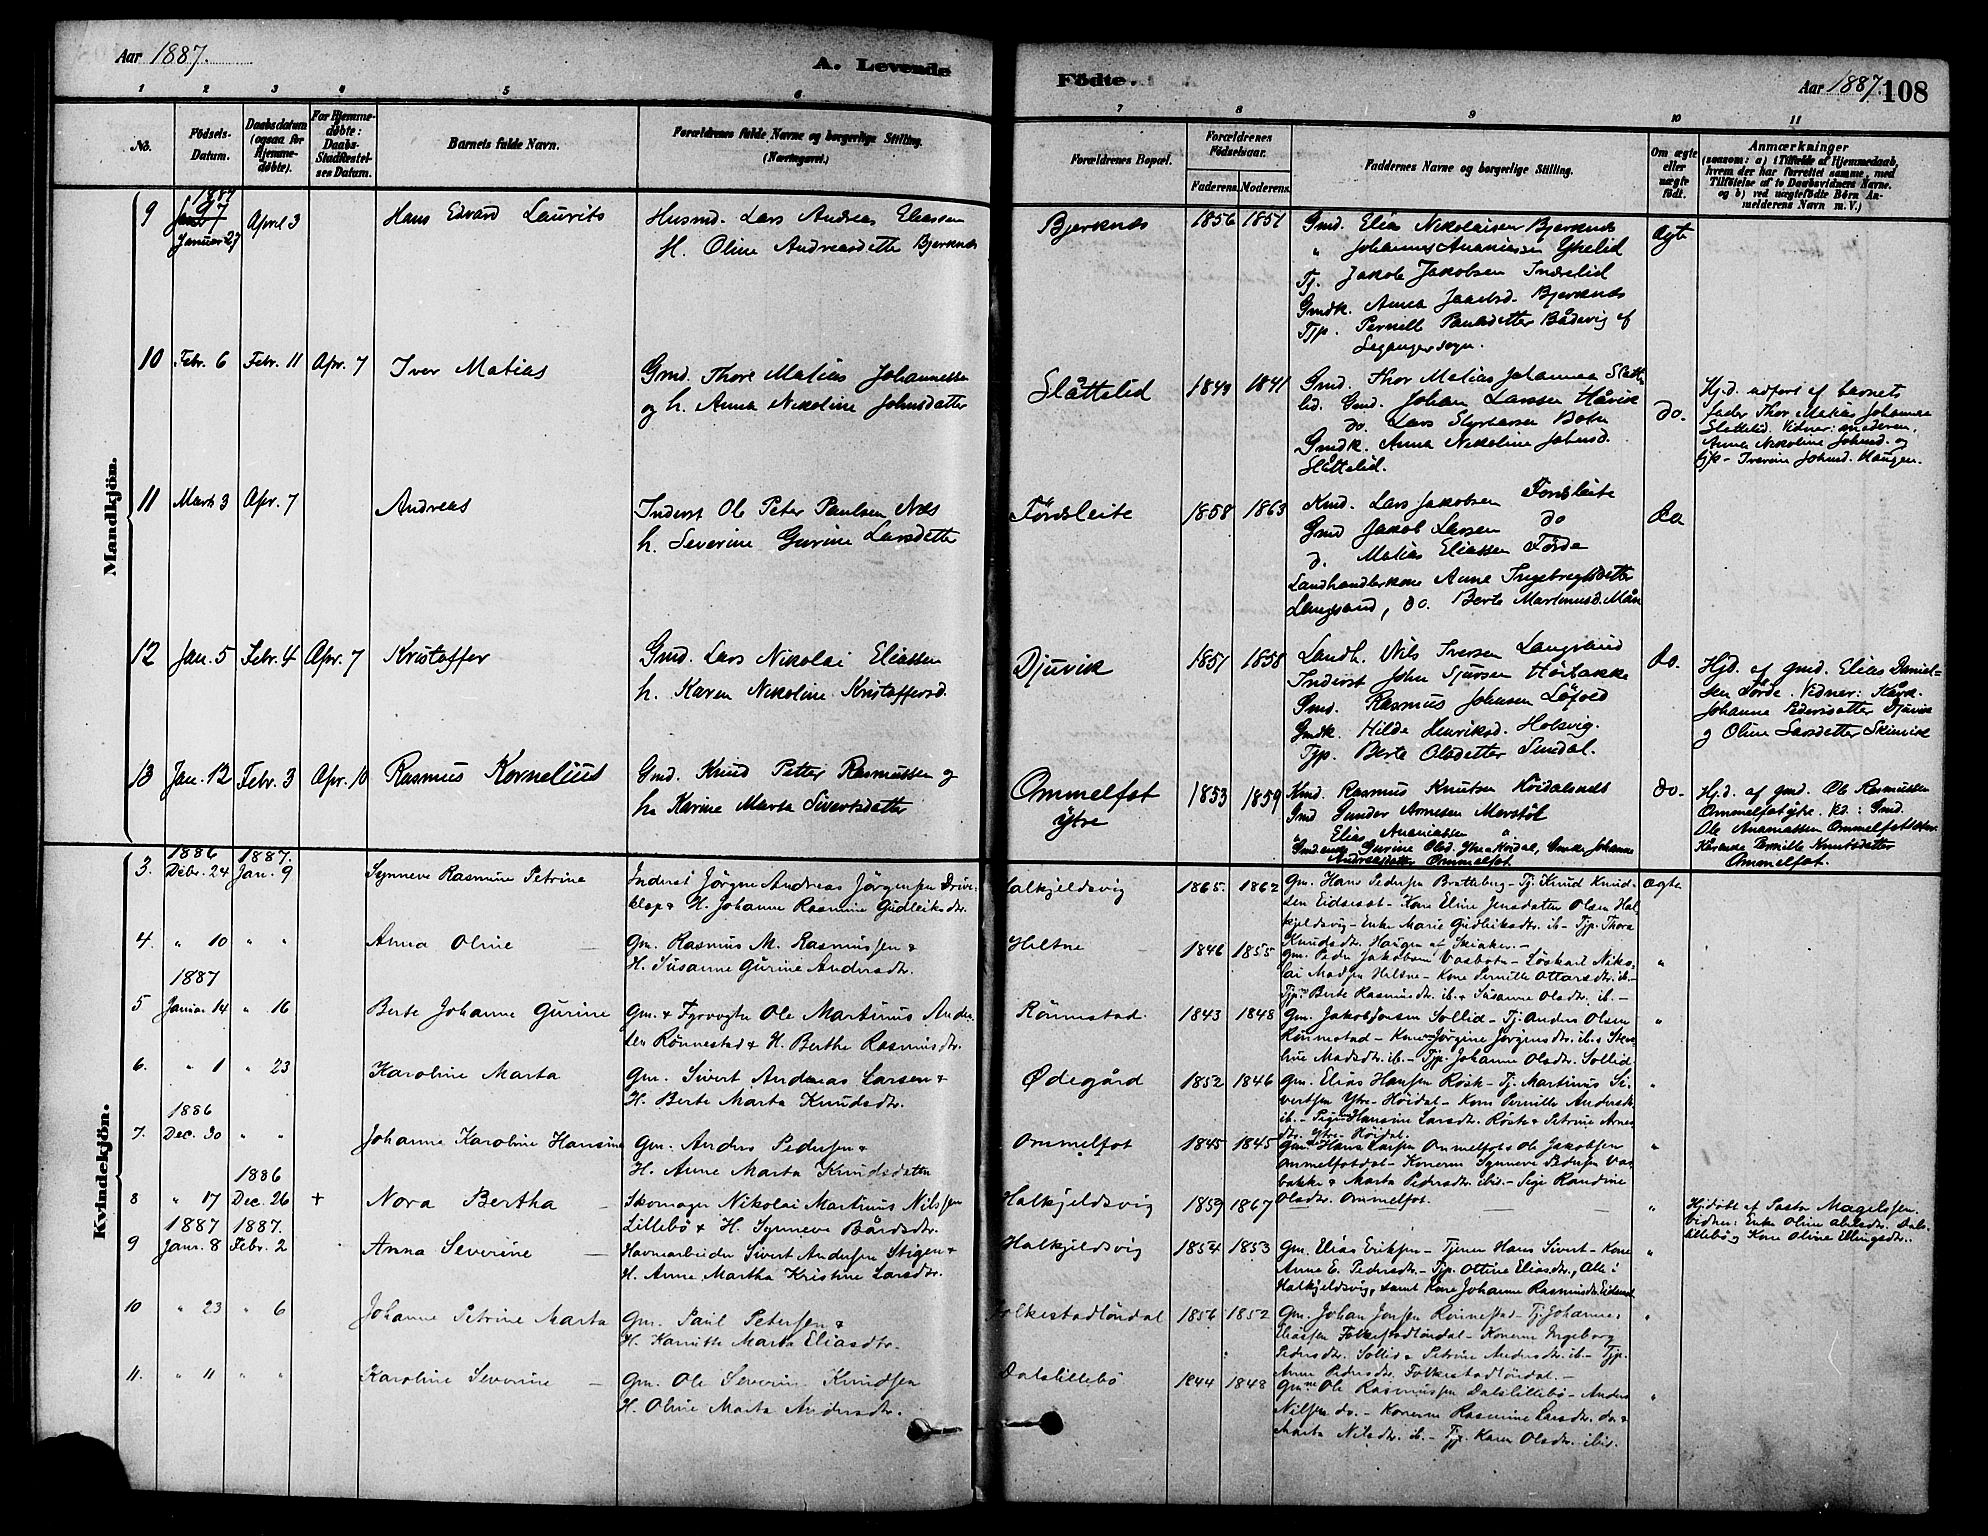 Aar 1887.
A. Levende
Fødte.
Aar 1887.
108
1 2 3 4 5 6 7 8 9 10 11
No.
Fødsels-Datum.
Daabsdatum (ogsaa for Hjemmedøbte).
For Hjemmedøbte: Daabs-Stadfæstelses Datum.
Barnets fulde Navn.
Forældrenes fulde Navne og borgerlige Stilling.
(Næringsvei.)
Forældrenes Bopæl.
Forældrenes Fødselsaar.
Faderens. Moderens.
Faddernes Navne og borgerlige Stilling.
Om ægte eller uægte født.
Anmærkninger
(saasom: a) i Tilfælde af Hjemmedaab, hvem der har forrettet samme, med Tilføielse af to Daabsvidners Navne. og b) ved uægtefødte Børn Anmelderens Navn m. V.)
Mandkjön.
9 1887 Januar 27 April 3 Hans Edvard Laurits
Husmd. Lars Andreas Eliassen
H. Oline Andreasdatter Bjerknes
Bjerknes 1856 1851
Gmd. Elias Nikolaisen Bjerknes
" Johannes Ananiassen Ykelid
Tj. Jakob Jakobsen Indrelid
Gmdk. Anna Jaaelsd. Bjerknes
Tjp. Pernille Paulsdetter Bådsvig af
Leganger sogn.
Ægte
10 Febr. 6 Febr. 11 Apr. 7 Iver Matias
Gmd. Thore Matias Johannessen
og h. Anna Nikoline Johnsdatter
Slåttelid 1849 1841
Gmd. Thor Matias Johannes Slåtte
lid. Gmd. Johan Larssen Håvik
do. Lars Styrkarsen Botn
Gmdk. Anna Nikoline Johnsd.
Slåttelid.
do.
Hj.d. udført af barnets
fader Thor Matias Johannes
Slåttelid. Vidner: moderen,
Anna Nikoline Johnsd. og
tjp- Iverine Johnsd. Haugen.
11 Marts 3 Apr. 7 Andreas
Inderst Ole Peter Paulsen Næs
h. Severine Gurine Larsdetter
Fördsleite 1858 1863
Kmd. Lars Jakobsen Fördsleite
Gmd Jakob Larsen do
d. Matias Eliassen Förde
Landhandlerkone Anne Ingebregtsdetter
Langsand, do. Berte Martinusd. Mån
do
12 Jan. 5 Febr. 4 Apr. 7 Kristoffer
Gmd. Lars Nikolai Eliassen
h. Karen Nikoline Kristoffersd.
Djuvik 1851 1858
Landh. Nils Iversen Langsand
Inderst John Sjursen Höibakke
Gmd. Rasmus Johnsen Löfold
Gmdk. Hilde Henriksd. Holsvig.
Tjp. Berte Olsdetter Sundal.
do.
Hjd. af gmd. Elias Daniel=
sen Förde. Vidner: Kårk.
Johanne Pedersdatter Djuvik
og Oline Larsdetter Skinvik
13 Jan. 12 Febr. 3 Apr. 10 Rasmus Kornelius
Gmd. Knud Petter Rasmussen og
h. Karine Marta Sivertsdatter
Ommelfot
ytre
1853 1859
Kmd. Rasmus Knutsen Höidalsnes
Gmd Gunder Arnesen Maristöl
" Elias Ananiassen "
Gmd.enke Gurine Olsd. Ytre Höidal, Enke Johanne
Andreasdetter Ommelfot.
do.
Hj.d. af gmd. Ole Rasmussen
Ommelfot ytre. Vd: Gmd.
Ole Ananiassen Ommelfotsæter.
Kårenke Pernille Knutsdetter
Ommelfot.
Kvindekjön.
3. 1886 Debr. 24 1887. Jan. 9 Synneve Rasmine Petrine
Inderst Jörgen Andreas Jörgensen Driveklep & H. Johanne Rasmine Gudleiksdtr.
Halkjeldsvig 1865. 1862
Gm. Hans Pedersen Bratteberg- Tj. Knud Knud-
sen Eidseset- Kone Eline Jensdatter Olsen Hal
kjeldsvig- Enke Marie Gudleiksdtr. ib- Tjp. Thora
Knudsdtr. Haugen af Skiaker.-
ægte
4. " 10 " " Anna Oline
Gm. Rasmus M. Rasmussen &
H. Susanne Gurine Andersdtr.
Heltne 1846 1855
Gm. Peder Jakobsen Vasbotn- Löskarl Niko-
lai Madsen Heltne- Kone Pernille Ottarsdtr. ib.-
Tjp. Berte Rasmusdtr. ib. & Susanne Olsdtr. ib-
"
5 1887 Januar 14 " 16 Berte Johanne Gurine
Gm. & Fyrvogter Ole Martinus Ander
sen Rönnestad & H. Berthe Rasmusdtr.
Rönnestad 1843 1848
Gm. Jakob Jonsen Sollid- Tj. Anders Olsen
Rönnestad- Konerne Jörgine Jörgensdtr. ib. &
Madsdtr. ib.- Tjp. Johanne Olsdtr. Sollid.
"
6. " 1 " 23 Karoline Marta
Gm. Sivert Andreas Larsen &
H. Berte Marta Knudsdtr.
Ødegård 1852 1846
Gm. Elias Hansen Røsk- Tj. Martinus Si-
vertsen Ytre-Höidal- Kone Pernille Andersdtr.
ib.- Pigerne Hansine Larsdtr. Røsk & Petrine Arnes
dtr. Ytre-Höidal.
"
7. 1886 Dec. 30 " " Johanne Karoline Hansine
Gm. Anders Pedersen &
H. Anne Marta Knudsdatter
Ommelfot 1845 1845
Gmd. Hans Larsen Ommelfot & Ole Jakobsen
Ommelfotdal- Konerne Synneve Pedersen Vas
bakke & Marta Pedersdtr. ibid.- Pige Randine
Olsdtr. Ommelfot.
"
8 " 17 1886 Dec. 26 + Nora Bertha
Skomager Nikolai Martinus Nilssen
Lillebö & H. Synneve Bårdsdtr.
Halkjeldsvig 1859 1867
"
Hjdöbt af Pastor Magelssen.
Vidner: Enke Oline Olsdtr. Dals-
lillebö & Kone Oline Ellingsdtr.
9 1887 Janr. 8 1887. Febr. 2 Anna Severine
Havnearbeider Sivert Andersen Stigen &
H. Anne Martha Kristine Larsdtr.
Halkjeldsvig 1854 1853
Gm. Elias Eriksen- Tjener Hans Sivert- Kone
Anne E. Pedersdtr.- Tjp. Ottine Eliasdtr., Alle i
Halkjeldsvig, samt Kone Johanne Rasmusdtr. Eidseset
"
10 " 23 " 6 Johanne Petrine Marta
Gm. Paul Petersen &
H. Marta Eliasdtr.
Folkestadlöndal 1856 1852
Gm. Johan Jensen Rönnestad- Tj. Johannes
Eliassen Folkestadlöndal- Konerne Ingeborg
Pedersdtr. Sollid & Petrine Andersdtr. ib.- Tjp.
Anne Pedersdtr. Folkestadlöndal.-
"
11. " 11 " " Karoline Severine
Gm. Ole Severin Knudsen
H. Oline Marta Andersdtr.
Dalslillebö 1844 1848
Gm.ne Ole Rasmussen Dalslillebö- Anders
Nilsen do.- Konerne Rasmine Larsdtr. do. &
Marta Nilsdtr. ib- Tjp. Karen Olsdtr. ibid.
"